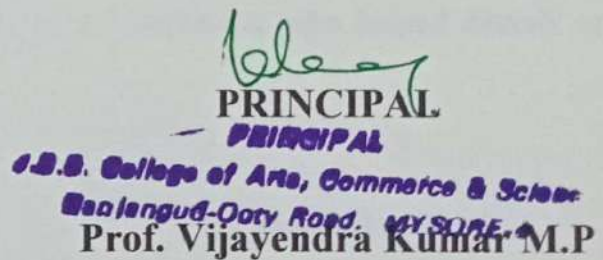 PRINCIPAL
PRINCIPAL
J.S.S. College of Arts, Commerce & Science
Nanjangud-Ooty Road, MYSORE-4
Prof. Vijayendra Kumar M.P